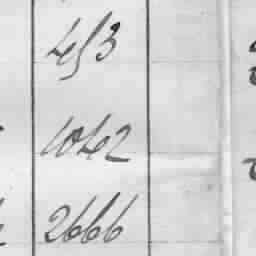 453
1042
2666